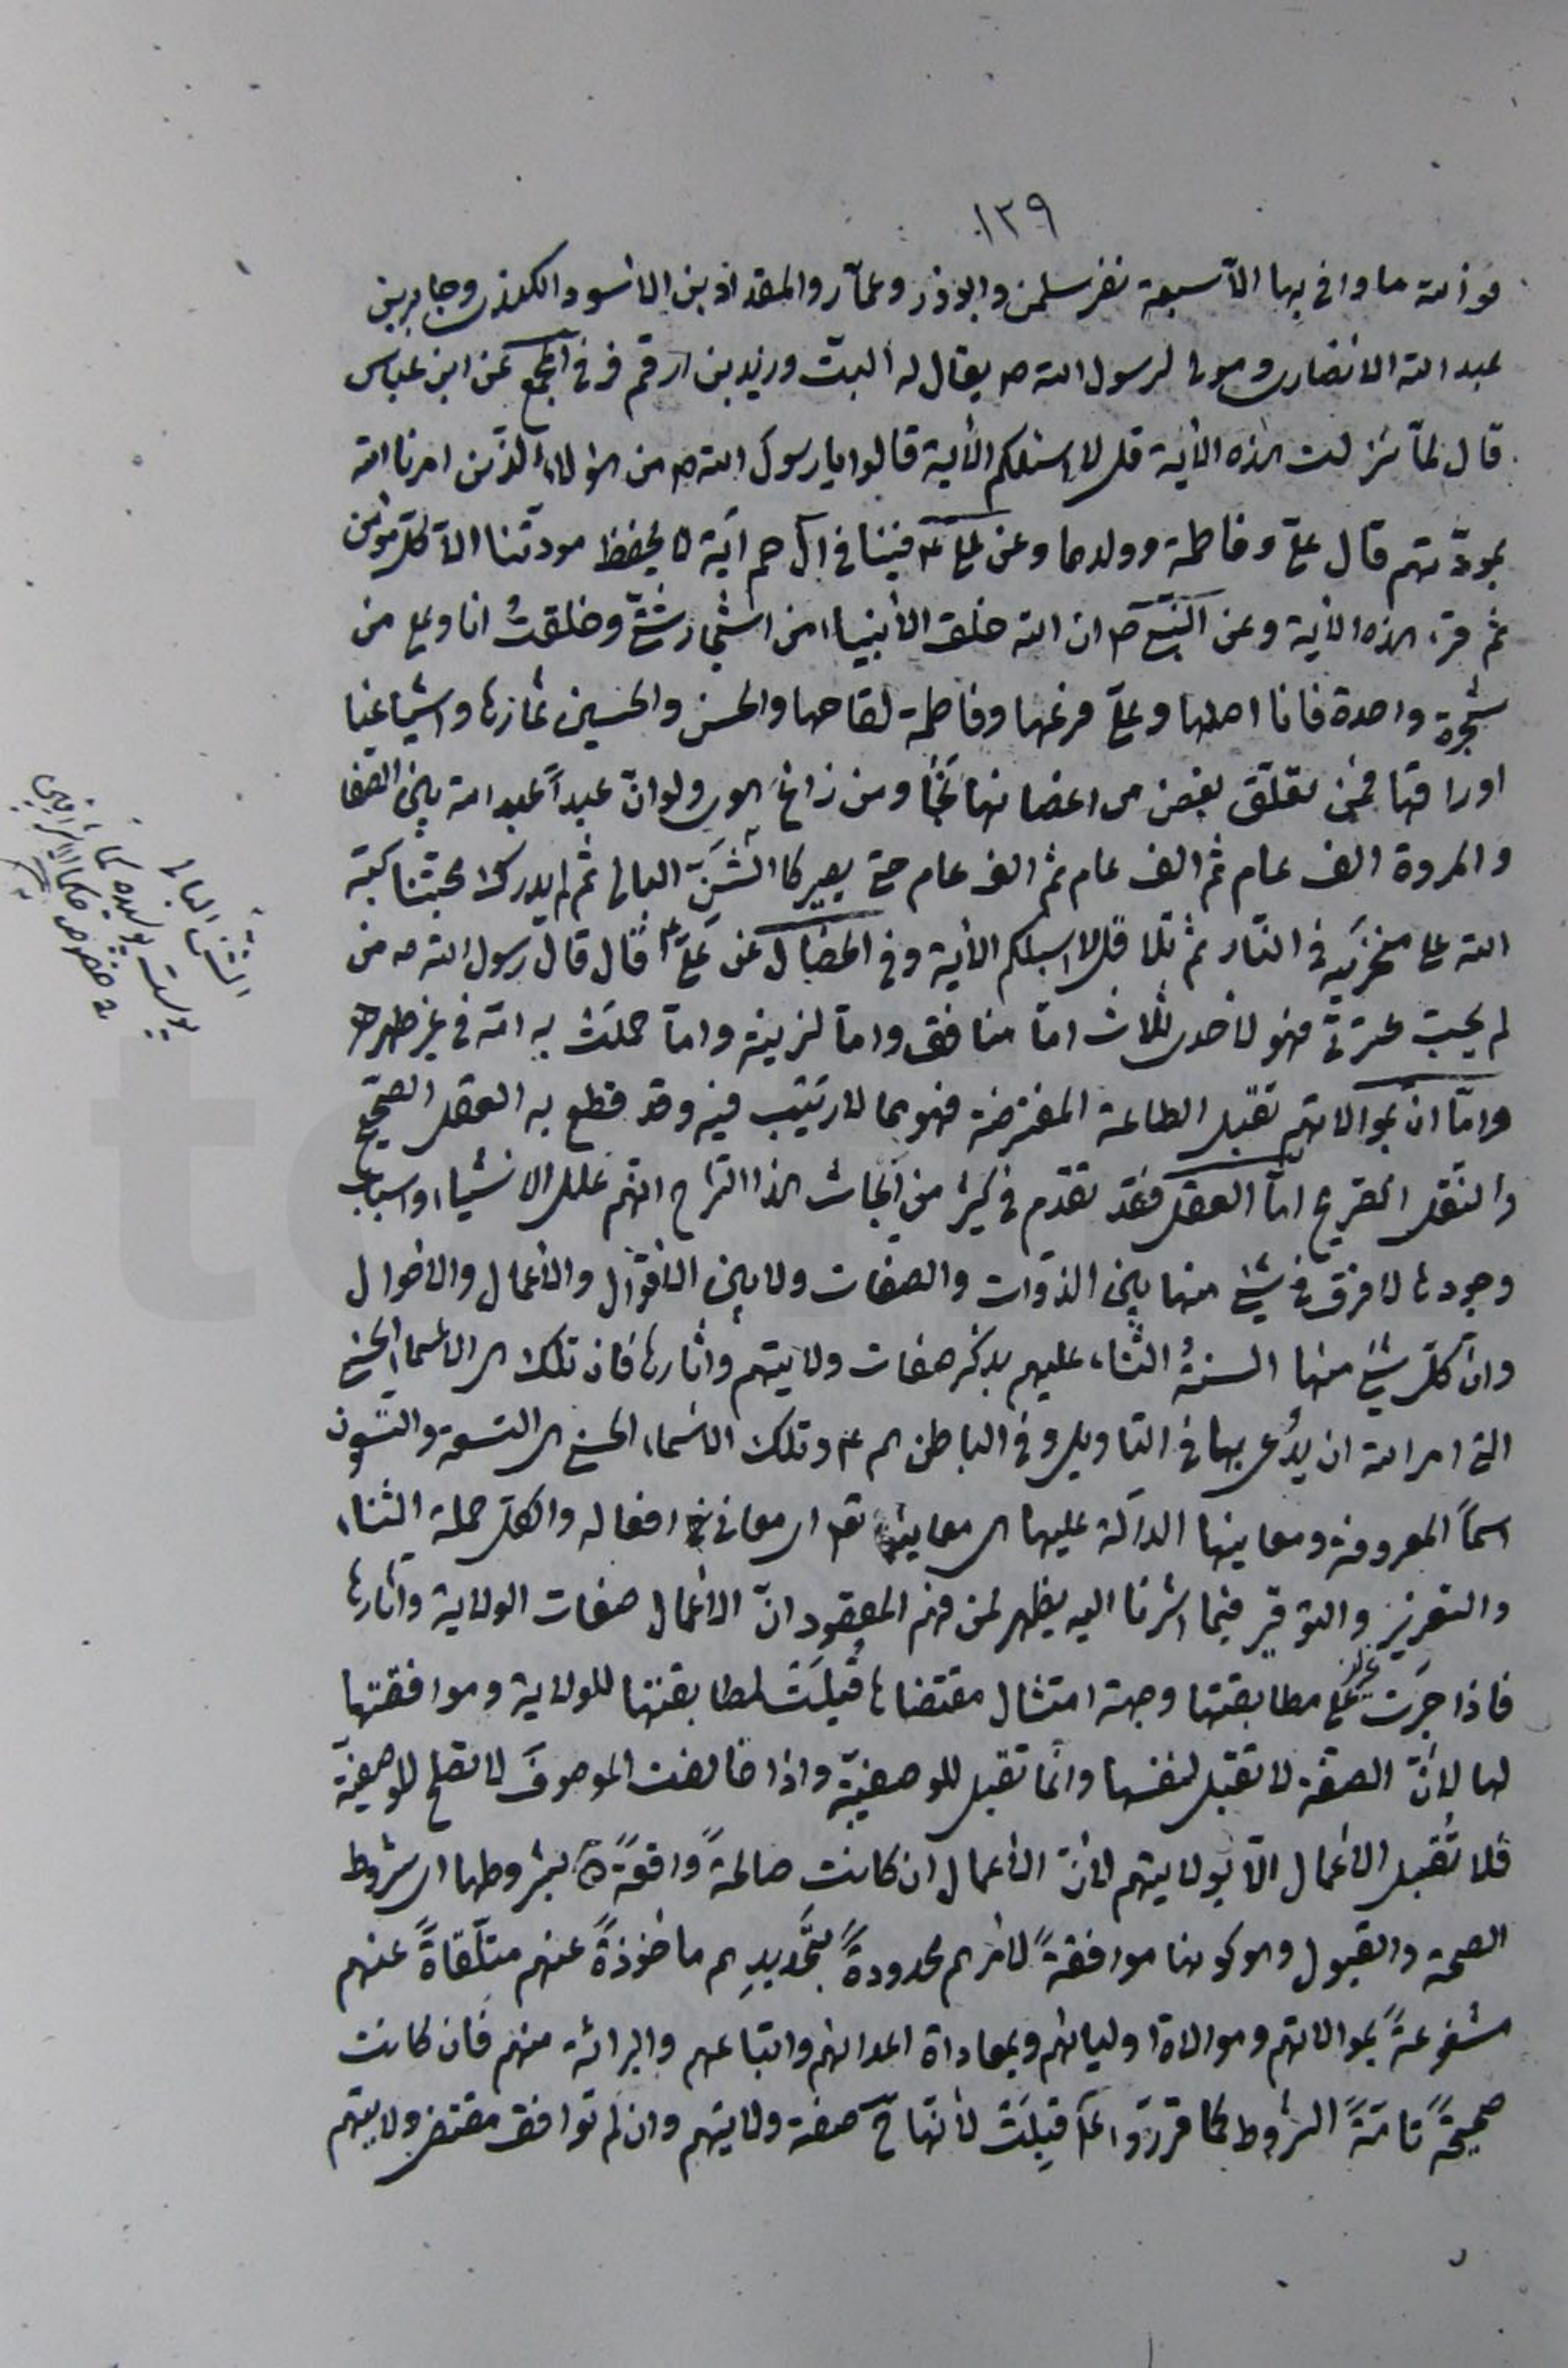 ١٣٩
فو الله ما وافى بها الّا سبعة نفر سلمن وابوذر وعمّار والمقداذ بن الاسود الكندى وجابر بن
عبد الله الانصارى ومولى لرسول الله ص يقال له البت وزيد بن ارقم فر فى المجمع عن ابن عباس
قال لمّا نزلت هذه الآية قل لا اسئلكم الآية قالوا يا رسول الله ص من هؤلاء الّذين امرنا الله
بمودّتهم قال علىّ وفاطمة وولدهما وعن علىّ ع فينا فى آل حم آية لا يحفظ مودّتنا الّا كلّ مؤمن
ثم قرء هذه الآية وعن النبىّ ص ان الله خلق الأنبياء من اشجار شتّى وخلقتُ انا وعلى من
شجرة واحدة فانا اصلها وعلىّ فرعها وفاطمة لقاحها والحسن والحسين ثمارها واشياعنا
اوراقها فمن تعلّق بغصن من اغصانها نَجٰا ومن زاغ هوى ولو انّ عبداً عبد الله بين الصفا
والمروة الف عام ثم الف عام ثم الف عام حتى يصير كالشَنّ البالى ثم لم يدرك محبّتنا كبّه
الله على منخريه فى النّار ثم تلا قل لا اسئلكم الآية وفى الخصال عن علىّ ع قال قال رسول الله ص من
لم يحبّ عترتى فهو لأحدى ثلاث امّا منافق وامّا لزينة وامّا حملَتْ به امّه فى غير طهر هـ
وامّا انّ بموالاتهم تقبل الطاعة المفترضة فهو مما لا ريَب فيه وقد قطع به العقل الصحيح
والنقل الصّريح امّا العقل فقد تقدم فى كثير من ابحاث هذا الشرح انّهم علل الاشياء واسباب
وجودها لا فرق فى شىء منها بين الذوات والصفات ولا بين الاقوال والأعمال والأحوال
وانّ كلّ شىء منها السنةُ الثناء عليهم بذكر صفات ولايتهم وآثارها فان تلك هى الاسماء الحسنى
التى امر الله ان يُدعى بها فى التأويل وفى الباطن هم ع وتلك الاسماء الحسنى هى التسعة والتسعون
اسماً المعروفة ومعانيها الدالّة عليها هى معانيه تعٰ اى معانى افعاله والكلّ جملة الثناء
والتعزيز والتوقير فيما اشرنا اليه يظهر لمن فهم المقصود انّ الأعمال صفات الولاية وآثارها
فاذا جرَت على مطابقتها وجهة امتثال مقتضاها قُبلَتْ لمطابقتها للولاية وموافقتها
لها لأنّ الصفة لا تقبل لنفسها وانّما تقبل للوصفيّة واذا خالفت الموصوفَ لا تصلح للوصفيّة
فلا تُقبل الأعمال الّا بولايتهم لأنّ الأعمال ان كانت صالحةً واقعةً بشروطها اى شروط
الصحة والقبول وهو كونها موافقةً لأمرهم محدودةً بتحديدِهم مأخوذةً عنهم متلقّاةً عنهم
مشفوعةً بموالاتهم وموالاة اوليائهم وبمعاداة اعدائهم واتباعهم والبرائة منهم فان كانت
صحيحةً تامّةً الشروط كما قرّروا ع قُبِلَتْ لأنّها ح صفة ولايتهم وان لم توافق مقتضى ولايتهم
الشن البالى
پوست پوسیده